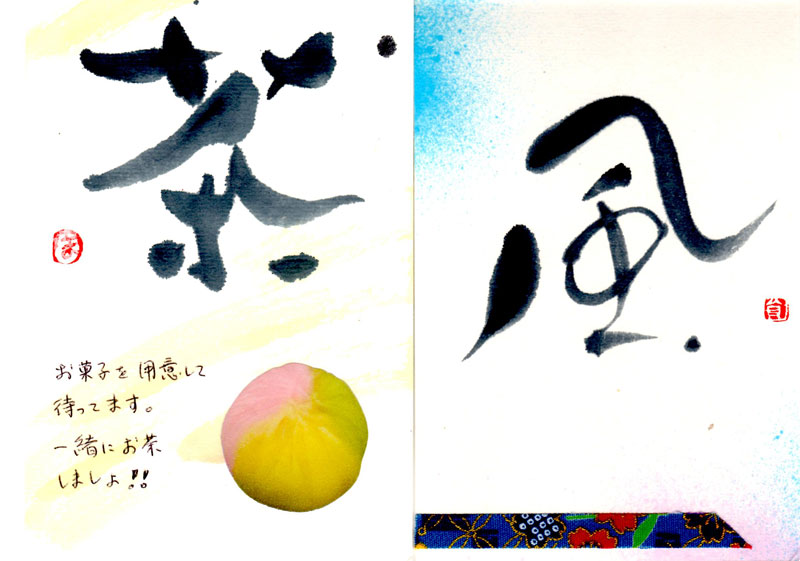 茶
お菓子を用意して
待ってます。
一緒にお茶
しましょ!!
風